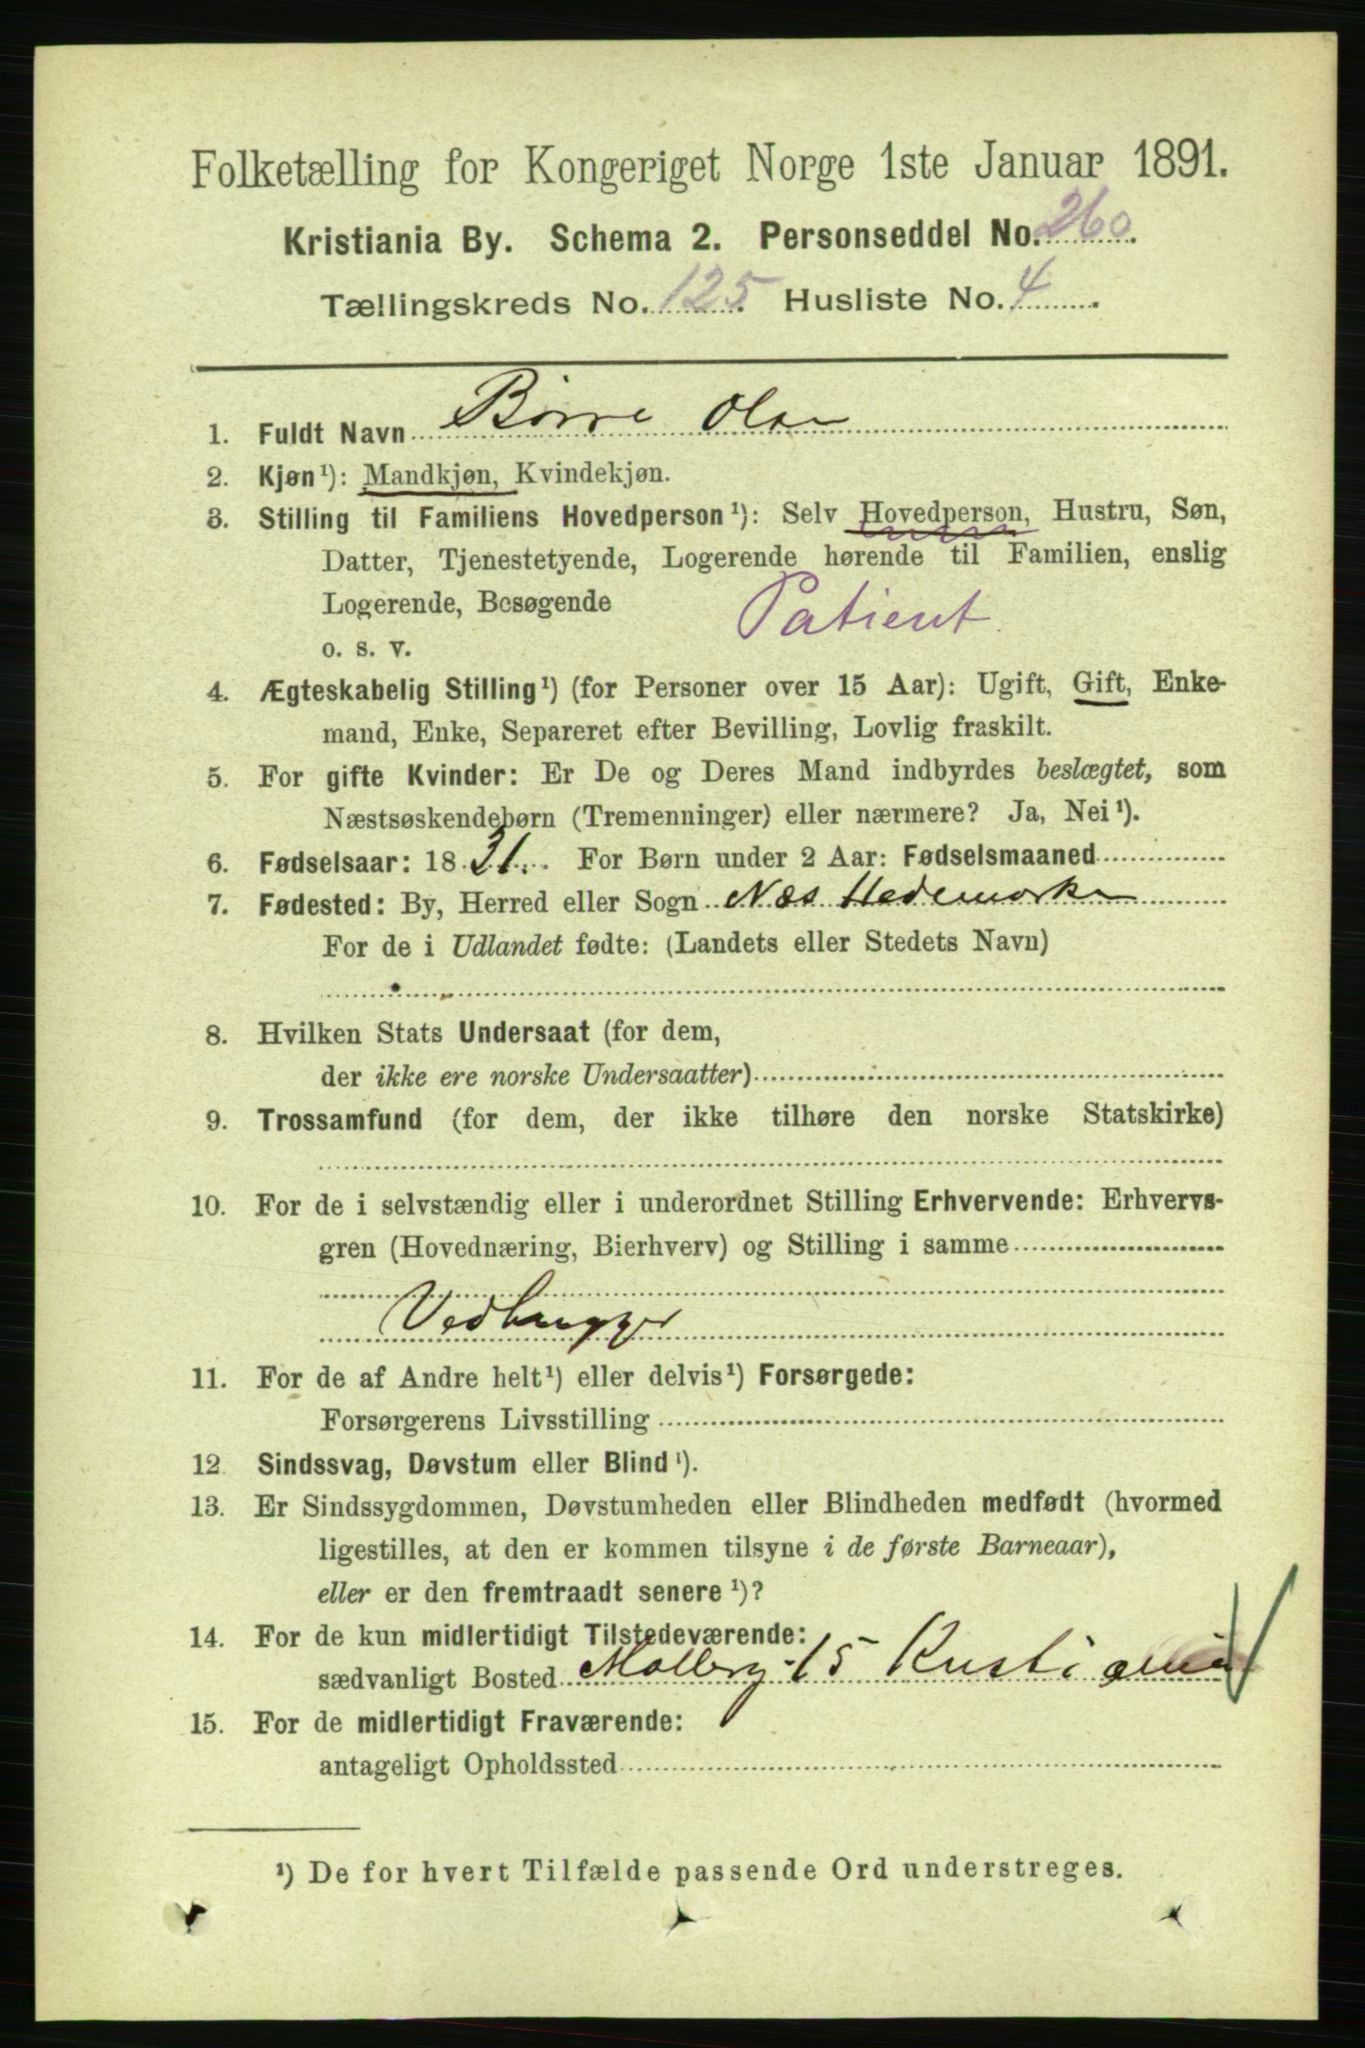 Folketælling for Kongeriget Norge 1ste Januar 1891.
Kristiania By. Schema 2. Personseddel No. 260.
Tællingskreds No. 125. Husliste No. 4.
1. Fuldt Navn Børre Olsen
2. Kjøn¹): Mandkjøn, Kvindekjøn.
3. Stilling til Familiens Hovedperson¹): Selv Hovedperson, Hustru, Søn,
Datter, Tjenestetyende, Logerende hørende til Familien, enslig
Logerende, Besøgende
Patient.
o. s. v.
4. Ægteskabelig Stilling¹) (for Personer over 15 Aar): Ugift, Gift, Enke-
mand, Enke, Separeret efter Bevilling, Lovlig fraskilt.
5. For gifte Kvinder: Er De og Deres Mand indbyrdes beslægtet, som
Næstsøskendebørn (Tremenninger) eller nærmere? Ja, Nei¹).
6. Fødselsaar: 1831. For Børn under 2 Aar: Fødselsmaaned
7. Fødested: By, Herred eller Sogn Næs Hedemarken
For de i Udlandet fødte: (Landets eller Stedets Navn)
8. Hvilken Stats Undersaat (for dem,
der ikke ere norske Undersaatter)
9. Trossamfund (for dem, der ikke tilhøre den norske Statskirke)
10. For de i selvstændig eller i underordnet Stilling Erhvervende: Erhvervs-
gren (Hovednæring, Bierhverv) og Stilling i samme
Vedhugger
11. For de af Andre helt¹) eller delvis¹) Forsørgede:
Forsørgerens Livsstilling
12. Sindssvag, Døvstum eller Blind¹).
13. Er Sindssygdommen, Døvstumheden eller Blindheden medfødt (hvormed
ligestilles, at den er kommen tilsyne i de første Barneaar),
eller er den fremtraadt senere¹)?
14. For de kun midlertidigt Tilstedeværende:
sædvanligt Bosted 15 Kristiania
15. For de midlertidigt Fraværende:
antageligt Opholdssted
¹) De for hvert Tilfælde passende Ord understreges.